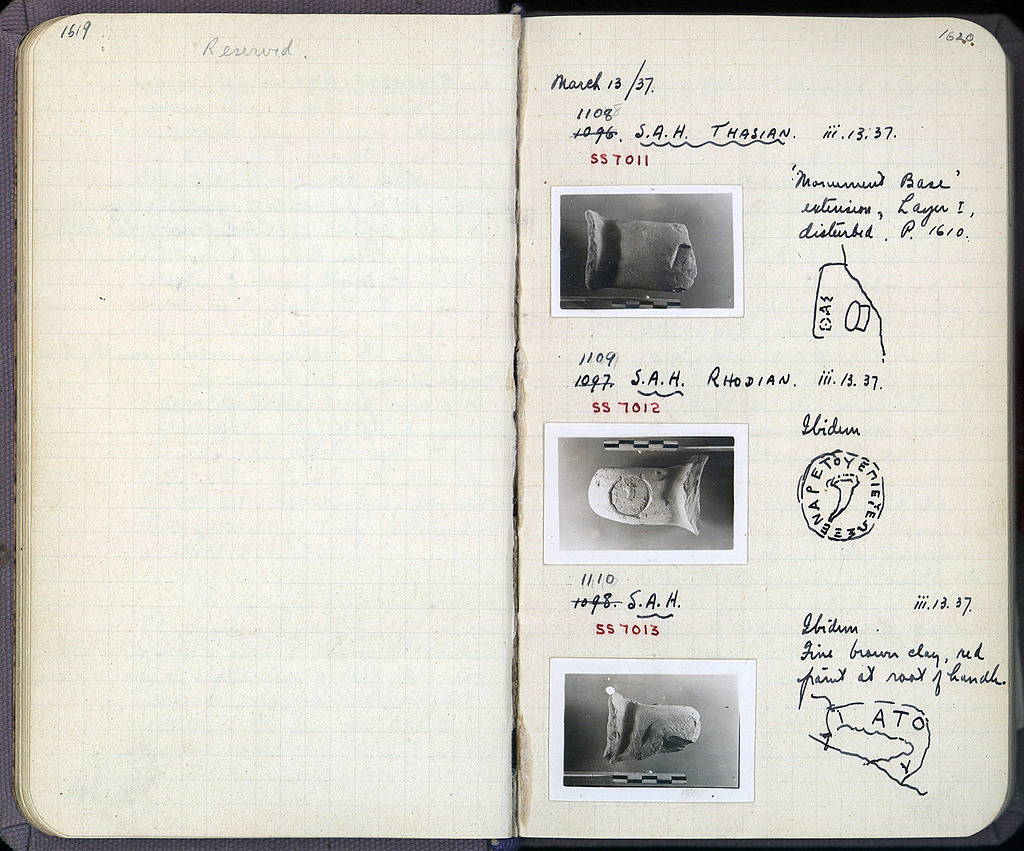 1619
Reserved.
1620.
March 13/37.
1108
1096. S.A.H. THASIAN. iii.13.37.
SS 7011
'Monument Base'
extension, Layer I,
disturbed. P. 1610.
ΘΑΣ
1109
1097. S.A.H. RHODIAN. iii.13.37.
SS 7012
Ibidem
ΞΕΝΑΡΕΤΟΥΕΠΙΕ
1110
1098. S.A.H. iii.13.37.
SS 7013
Ibidem.
Fine brown clay, red
paint at root of handle.
ΑΤΟ